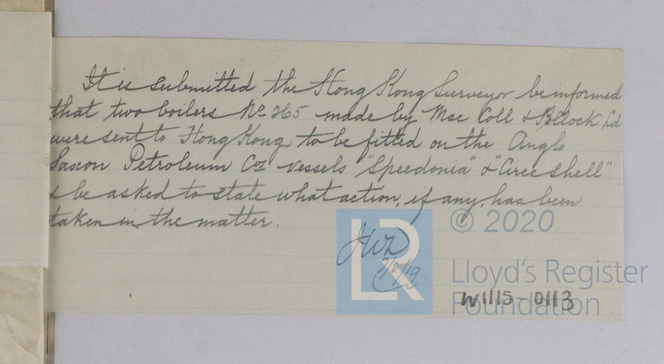 It is submitted the Hong Kong Surveyor be informed
that two boilers No 265 made by Mac Coll & Pollock Ld
were sent to Hong Kong to be fitted on the Anglo
Saxon Petroleum Cos vessels "Speedonia" & "Circe Shell"
& be asked to state what action, if any, has been
taken in the matter.
© 2020
LR
Lloyd's Register
Foundation
W1115-0113